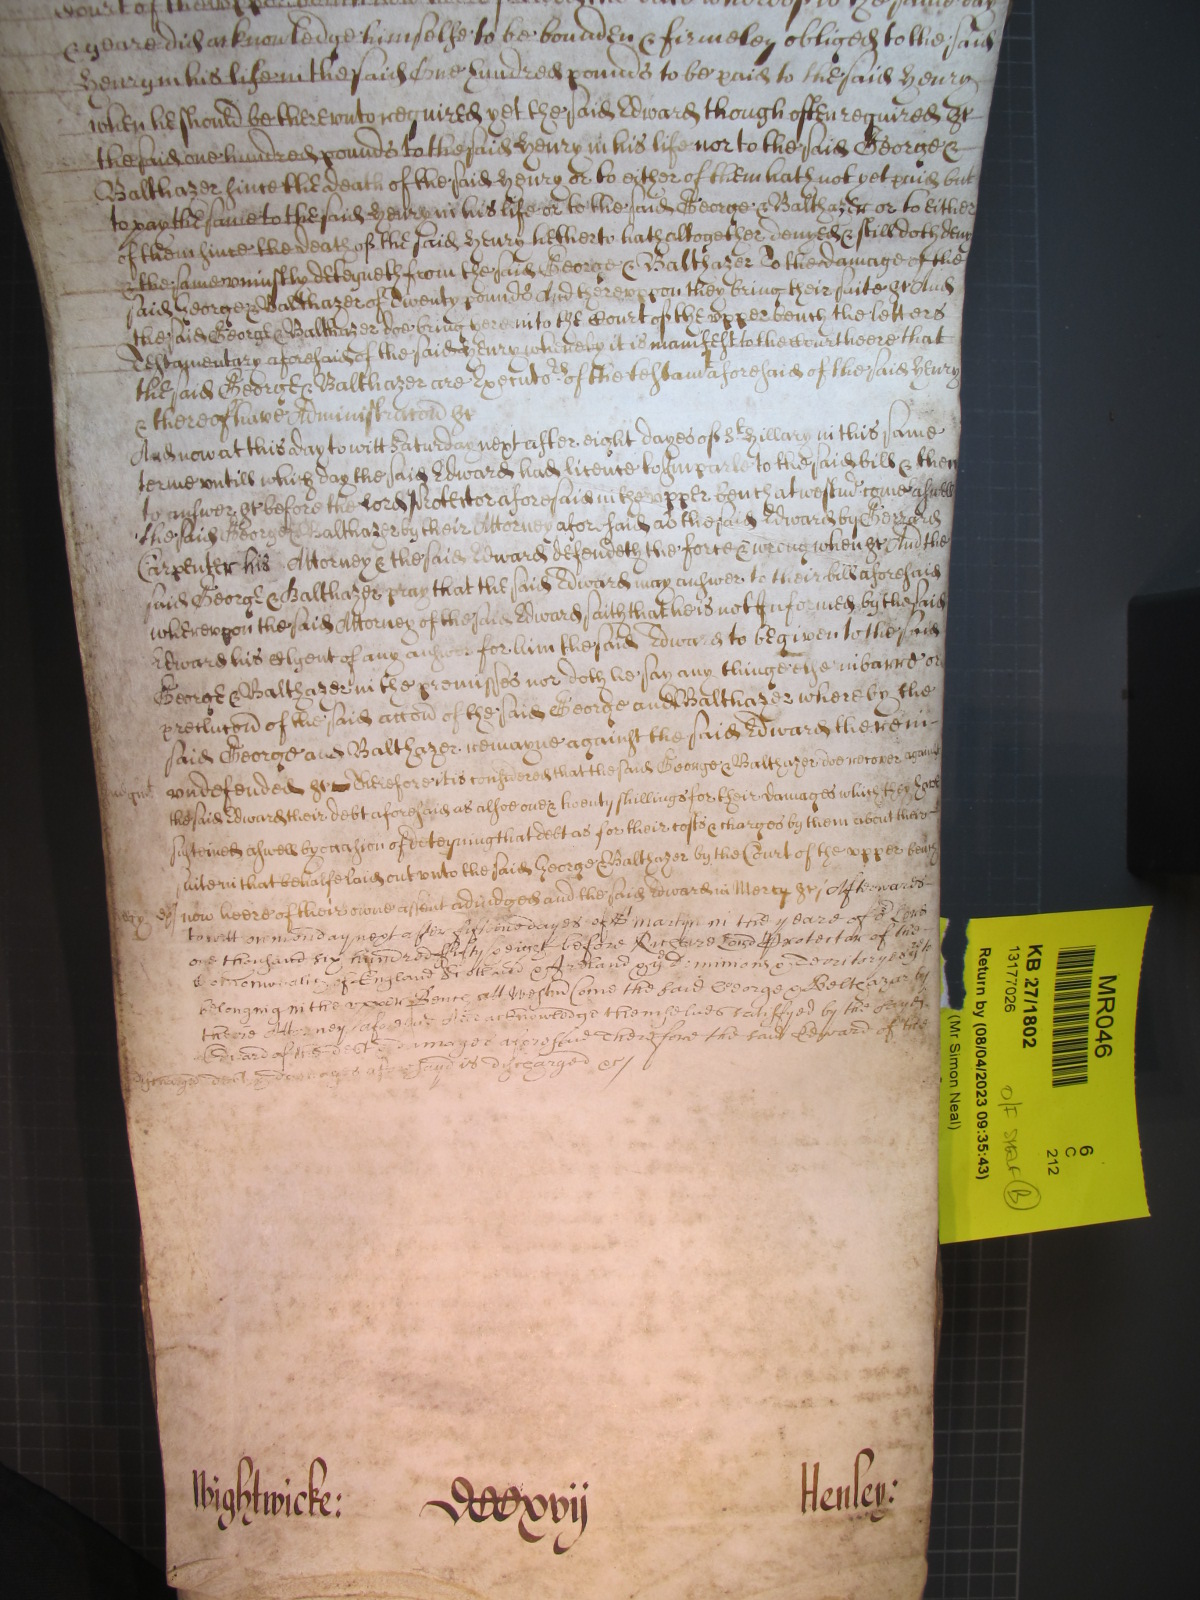 Court of the upper bench the same day
& yeare did acknowledge himselfe to be bounden & firmeley obliged to the said
Henry in his life in the said One hundred pounds to be paid to the said Henry
when he should be therevnto required yet the said Edward though often required &c
the said one hundred pounds to the said Henry in his life nor to the said George &
Balthazer since the death of the said Henry or to either of them hath not yet paid but
to pay the same to the said Henry in his life or to the said George & Balthazer or to either
of them since the death of the said Henry hetherto hath altogether denyed & still doth deny
& the same uniustly deteyneth from the said George & Balthazer To the damage of the
said George & Balthazer of Twenty pounds And therevppon they bring their suite &c And
the said George & Balthazer doe bring here into the Court of the vpper bench the letters
Testamentary aforesaid of the said Henry whereby it is manifest to the Court heere that
the said George & Balthazer are Executors of the testamt aforesaid of the said Henry
& thereof have Administracon &c
And now at this day to witt Saturday next after eight dayes of St Hillary in this same
terme vntill which day the said Edward had licence to Imparle to the said bill & then
to answer &c before the Lord Protector aforesaid in the vpper bench at westmr come aswell
the said George & Balthazer by their Attorney aforesaid as the said Edward by Gerrard
Carpenter his Attorney & the said Edward defendeth the force & wrong when &c And the
said George & Balthazer pray that the said Edward may answer to their bill aforesaid
wherevpon the said Attorney of the said Edward saith that he is not Informed by the said
Edward his Clyent of any answer for him the said Edward to be given to the said
George & Balthazer in the premisses nor doth he say any thinge else in barre or
preclucon of the said accon of the said George and Balthazer whereby the
said George and Balthazer remayne against the said Edward therein
vndefended &c Therefore it is considered that the said George & Balthazer doe recover against
the said Edward their debt aforesaid as alsoe over twenty shillings for their damages which they have
susteined aswell by occasion of deteyning that debt as for their costs & charges by them about their
suite in that behalfe laid out vnto the said George & Balthazer by the Court of the vpper bench
now heere of their owne assent adiudged and the said Edward in Mercy &c Afterwards
to witt on monday next after fifteene dayes of St martyn in the yeare of or Lord
one thousand six hundred fifty & eight before Richard Lord Protector of the
Comonwealth of England Scotland & Ireland & the dominions & territoryes thereto
belonging in the vpper Bench att Westmr Come the said George & Baltazar by
theire Attorney aforesaid And acknowledge themselues satisfyed by the said
Edward of the debt & damages aforesaid Therefore the said Edward of the
debt & damages aforesayd is discharged &c
Wightwicke: DCCCxvij Henley:
MR046
KB 27/1802
13177026
Return by (08/04/2023 09:35:43)
(Mr Simon Neal)
6
C
212
O/F Shelf B